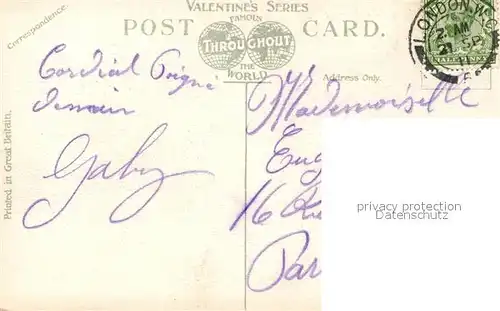 VALENTINE'S SERIES
FAMOUS
POST CARD.
THROUGHOUT
THE WORLD
Correspondence.
Address Only.
Printed in Great Britain.
LONDON. W.C
2. AM
21 SP
HALFPENNY
Cordial
Gaby
Mademoiselle
Eug
16 Ru
Par
privacy protection
Datenschutz